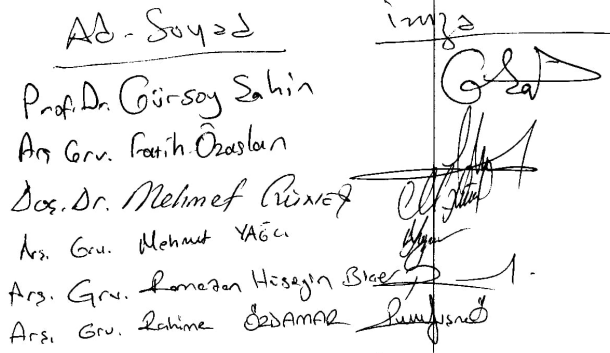 Ad-Soyad imza
Prof. Dr. Gürsoy Şahin
Arş Grv. Fatih Özaslan
Doç. Dr. Mehmet GÜNEŞ
Arş. Grv. Mehmet YAĞCI
Arş. Grv. Ramazan Hüseyin Biçer
Arş. Grv. Rahime ÖZDAMAR